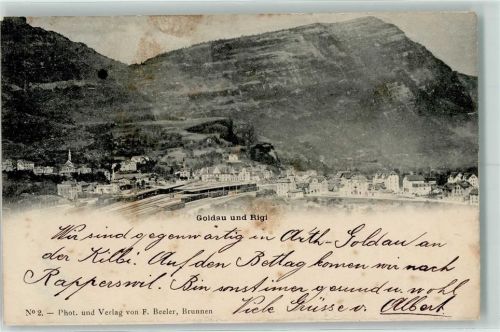 Goldau und Rigi
Wir sind gegenwärtig in Arth-Goldau an
der Kilbi. Auf den Bettag komen wir nach
Rapperswil. Bin sonst immer gesund u. wohl
Viele Grüsse v. Albert
No 2. – Phot. und Verlag von F. Beeler, Brunnen